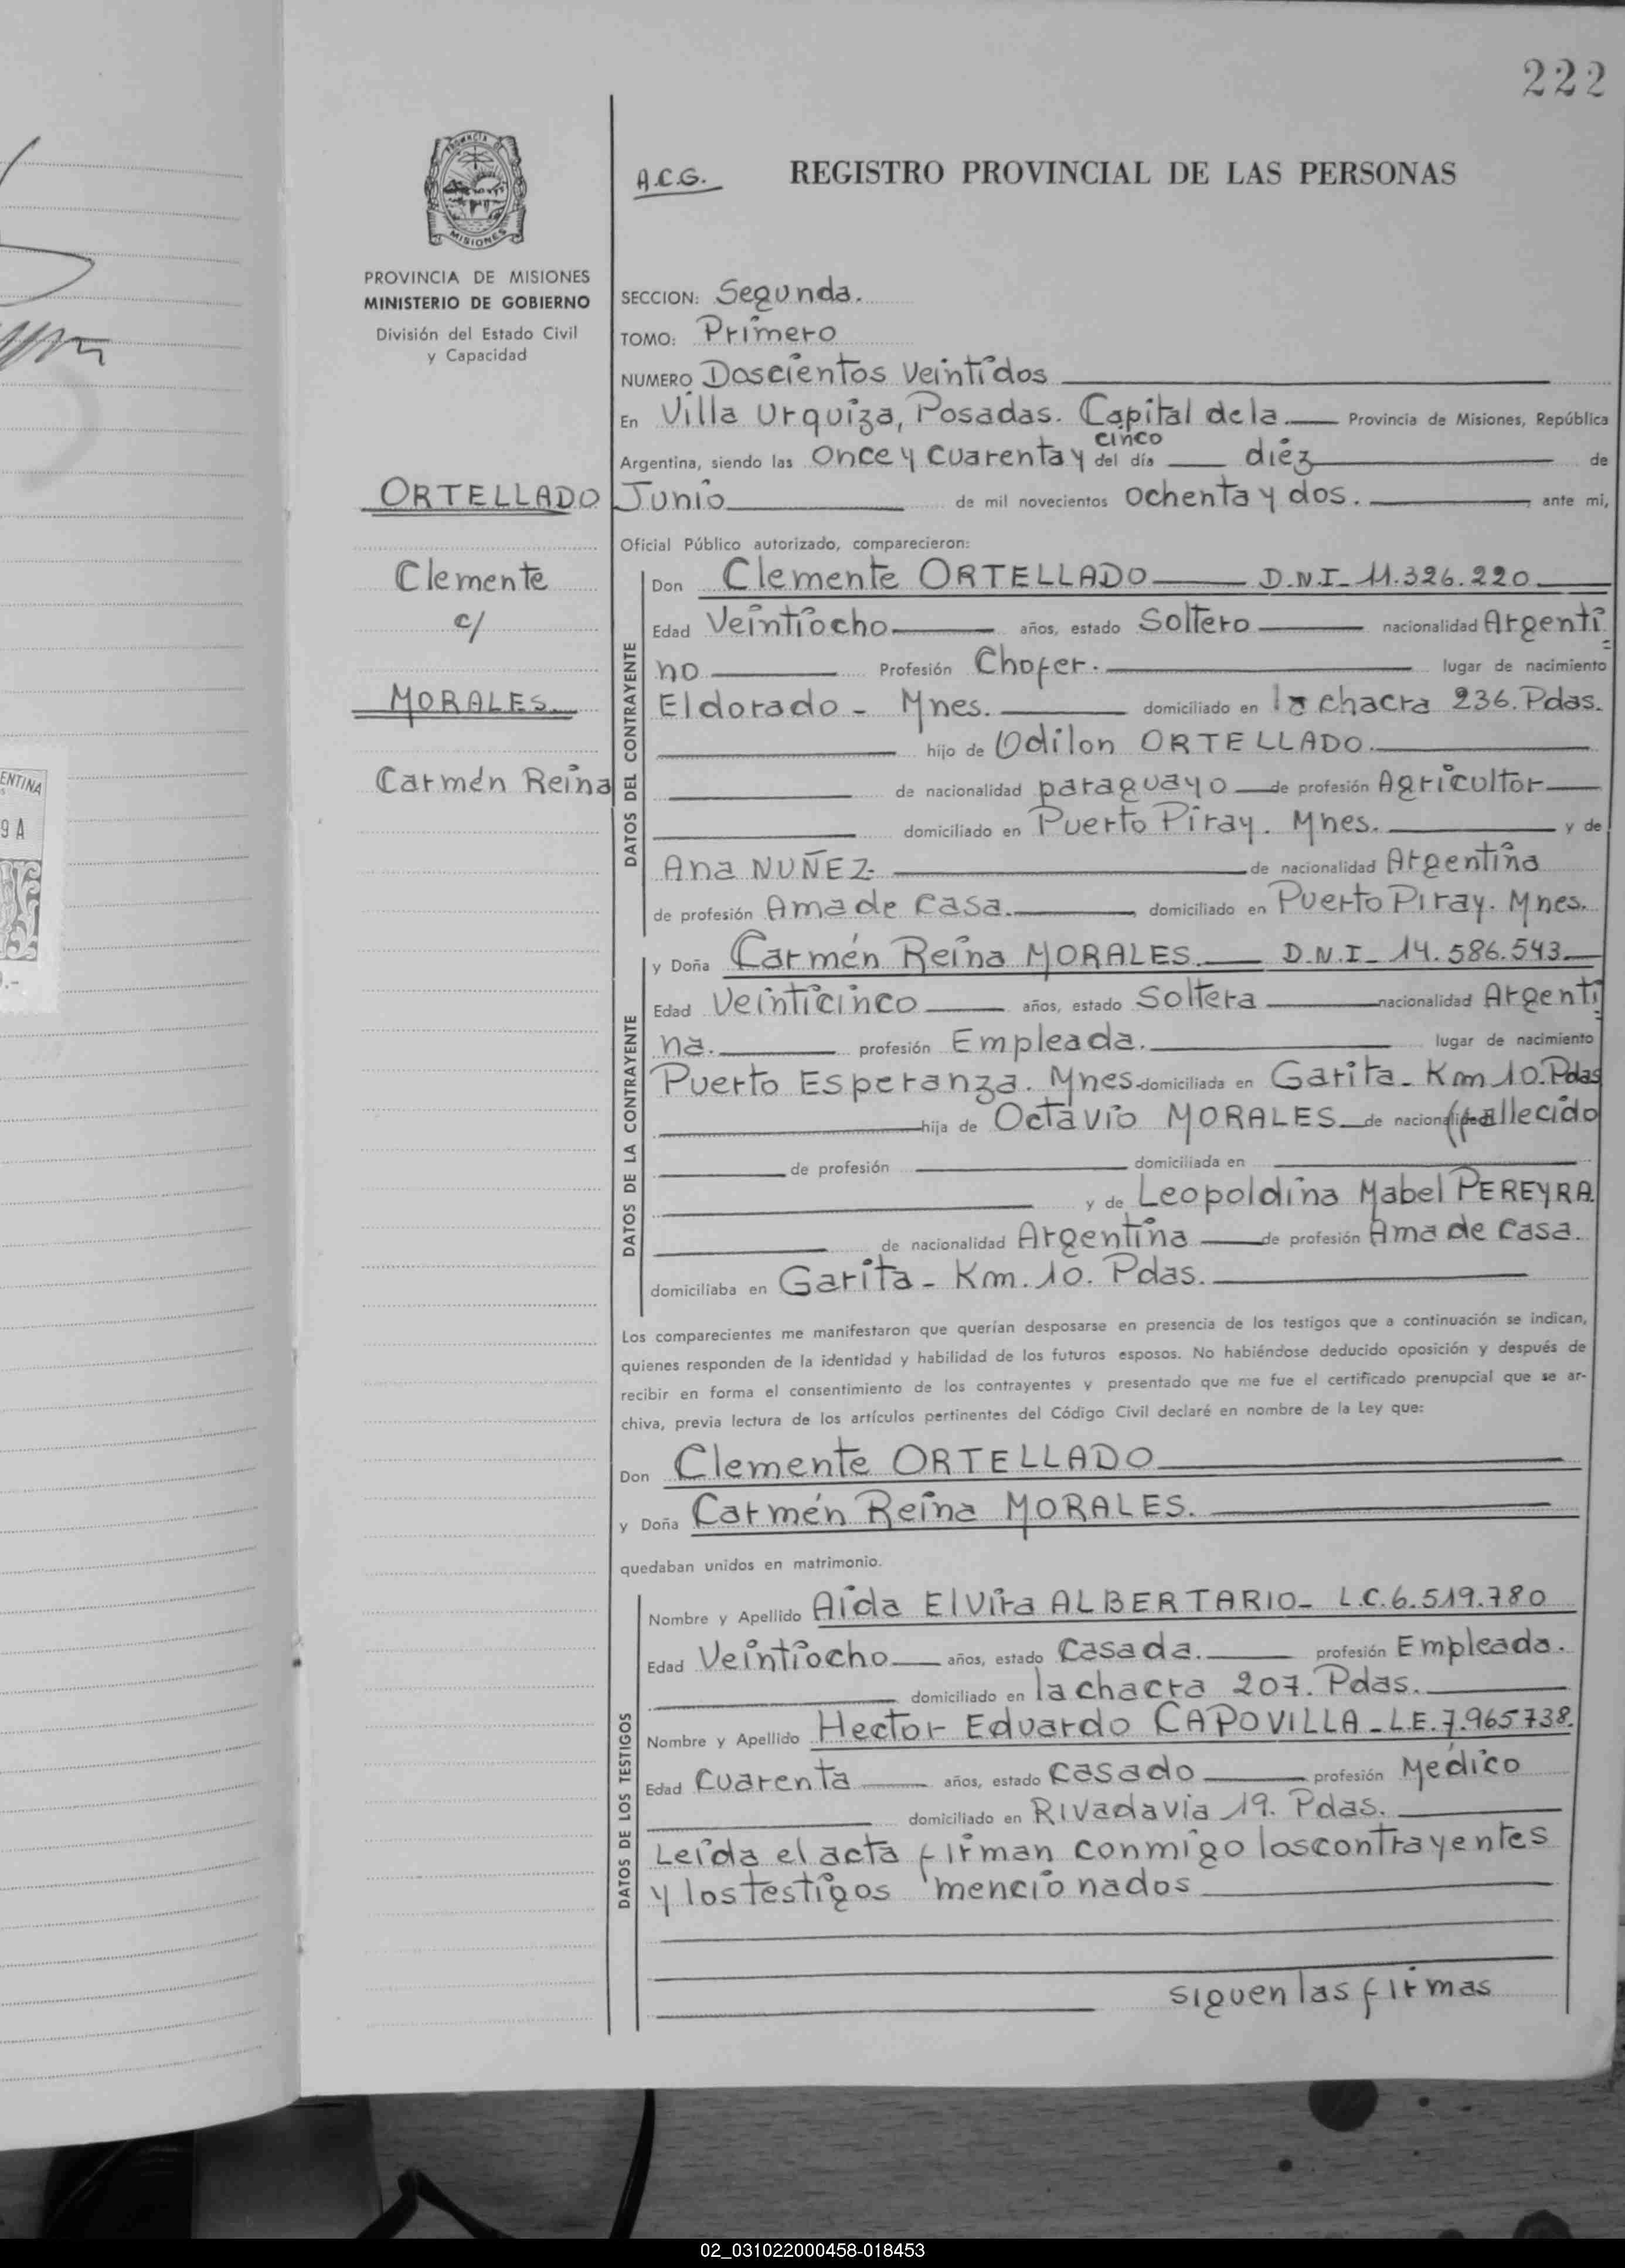 222
A.C.G.
REGISTRO PROVINCIAL DE LAS PERSONAS
MISIONES
PROVINCIA DE MISIONES
MINISTERIO DE GOBIERNO
División del Estado Civil
y Capacidad
ORTELLADO
Clemente
c/
MORALES
Carmén Reina
ENTINA
9 A
SECCION: Segunda.
TOMO: Primero
NUMERO Doscientos Veintidos
En Villa Urquiza, Posadas. Capital de la Provincia de Misiones, República
cinco
Argentina, siendo las Once y cuarenta y del día diéz de
Junio de mil novecientos ochenta y dos. ante mi,
Oficial Público autorizado, comparecieron:
DATOS DEL CONTRAYENTE
Don Clemente ORTELLADO D.N.I_ 11.326.220
Edad Veintiocho años, estado Soltero nacionalidad Argenti
no Profesión Chofer. lugar de nacimiento
Eldorado - Mnes. domiciliado en la chacra 236. Pdas.
hijo de Odilon ORTELLADO.
de nacionalidad paraguayo de profesión Agricultor
domiciliado en Puerto Piray. Mnes. y de
Ana NUÑEZ. de nacionalidad Argentina
de profesión Ama de casa. domiciliado en Puerto Piray. Mnes.
DATOS DE LA CONTRAYENTE
y Doña Carmén Reina MORALES. D.N.I_ 14.586.543.
Edad Veinticinco años, estado Soltera nacionalidad Argenti
na. profesión Empleada. lugar de nacimiento
Puerto Esperanza. Mnes. domiciliada en Garita_ Km 10. Pdas
hija de Octavio MORALES de nacionalidad (fallecido
de profesión domiciliada en
y de Leopoldina Mabel PEREYRA.
de nacionalidad Argentina de profesión Ama de casa.
domiciliaba en Garita_ Km. 10. Pdas.
Los comparecientes me manifestaron que querían desposarse en presencia de los testigos que a continuación se indican,
quienes responden de la identidad y habilidad de los futuros esposos. No habiéndose deducido oposición y después de
recibir en forma el consentimiento de los contrayentes y presentado que me fue el certificado prenupcial que se ar-
chiva, previa lectura de los artículos pertinentes del Código Civil declaré en nombre de la Ley que:
Don Clemente ORTELLADO
y Doña Carmén Reina MORALES.
quedaban unidos en matrimonio.
DATOS DE LOS TESTIGOS
Nombre y Apellido Aida Elvira ALBERTARIO_ L.C.6.519.780
Edad Veintiocho años, estado casada. profesión Empleada.
domiciliado en la chacra 207. Pdas.
Nombre y Apellido Hector Eduardo CAPOVILLA_L.E.7.965738.
Edad Cuarenta años, estado casado profesión Médico
domiciliado en Rivadavia 19. Pdas.
Leida el acta firman conmigo los contrayentes
y los testigos mencionados
siguen las firmas
02_031022000458-018453